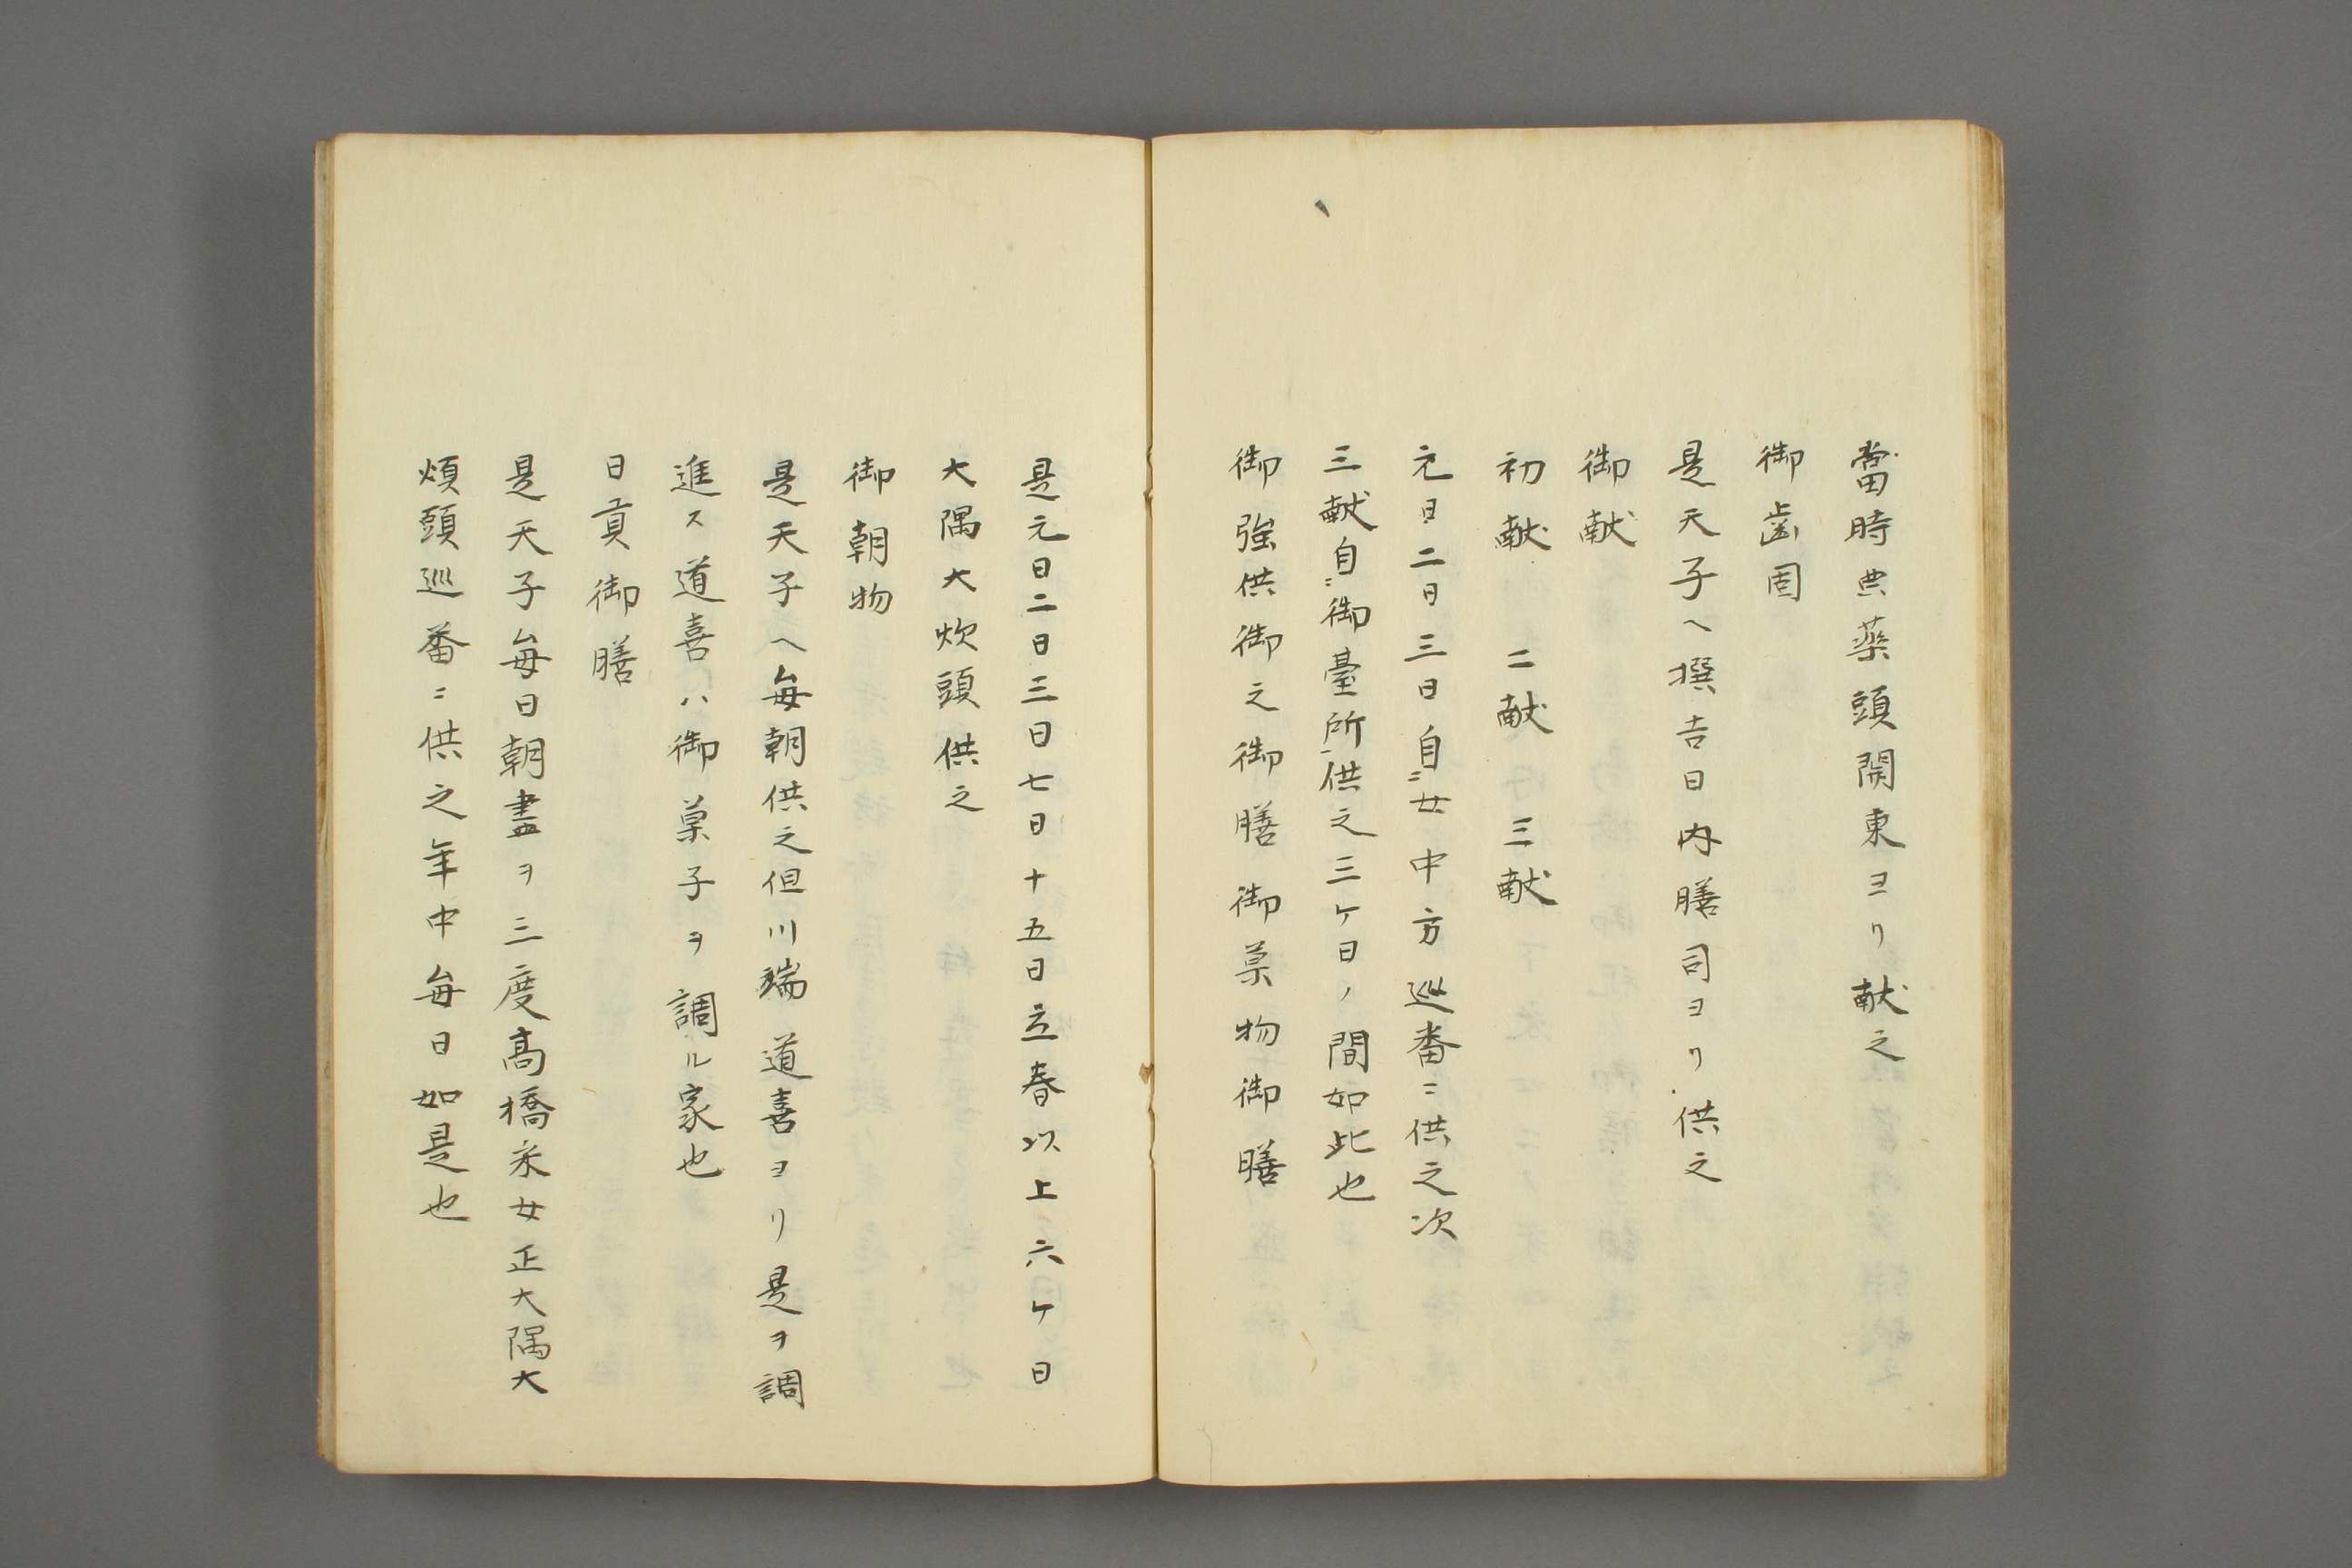 當時典薬頭関東ヨリ献之
御歯固
是天子ヘ撰吉日内膳司ヨリ供之
御献
初献 二献 三献
元日二日三日自女中方巡番ニ供之次
三献自御臺所供之三ケ日ノ間如此也
御強供御之御膳御菓物御膳
是元日二日三日七日十五日立春以上六ケ日
大隅大炊頭供之
御朝物
是天子ヘ毎朝供之但川端道喜ヨリ是ヲ調
進ス道喜ハ御菓子ヲ調ル家也
日貢御膳
是天子毎日朝晝ヲ三度高橋采女正大隅大
煩頭巡番ニ供之年中毎日如是也